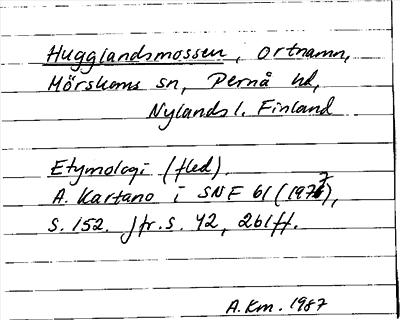 Hugglandsmossen, ortnamn,
Mörskoms sn, Pernå hd,
Nylands l. Finland
Etymologi (fled).
A. Kartano i SNF 61 (1977),
s. 152. Jfr. s. 42, 261 ff.
A. Km. 1987